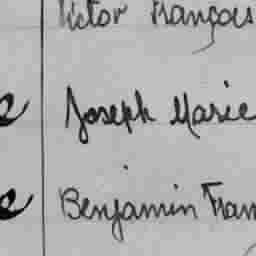 Victor François
Joseph Marie
Benjamin Fran